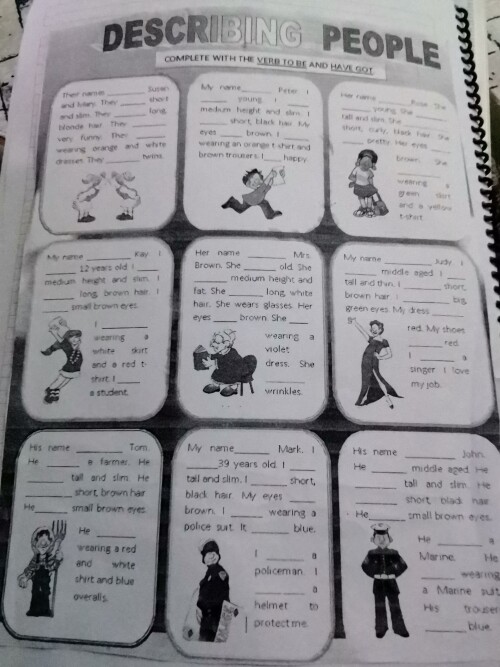 DESCRIBING PEOPLE
COMPLETE WITH THE VERB TO BE AND HAVE GOT
Their names ______ Susan
and Mary. They ______ short
and slim. They ______ long,
blonde hair. They ______
very funny. They ______
wearing orange and white
dresses. They ______ twins.
My name ______ Peter. I
______ young. I ______
medium height and slim. I
______ short, black hair. My
eyes ______ brown. I ______
wearing an orange t-shirt and
brown trousers. I ____ happy.
Her name ______ Rose. She
______ young. She ______
tall and slim. She ______
short, curly, black hair. She
______ pretty. Her eyes ______
brown. She
______
wearing a
green skirt
and a yellow
t-shirt.
My name ______ Kay. I
______ 12 years old. I ______
medium height and slim. I
______ long, brown hair. I
______ small brown eyes.
I ______
wearing a
white skirt
and a red t-
shirt. I ____
a student.
Her name ______ Mrs.
Brown. She ______ old. She
______ medium height and
fat. She ______ long, white
hair. She wears glasses. Her
eyes ____ brown. She ____
wearing a
violet
dress. She
______
wrinkles.
My name ______ Judy. I
______ middle aged. I ____
tall and thin. I ______ short,
brown hair. I ______ big,
green eyes. My dress ____
red. My shoes
______ red.
I ______ a
singer. I love
my job.
His name ______ Tom.
He ______ a farmer. He
______ tall and slim. He
______ short, brown hair.
He______ small brown eyes.
He ______
wearing a red
and white
shirt and blue
overalls.
My name______ Mark. I
____39 years old. I ____
tall and slim. I ______ short,
black hair. My eyes ____
brown. I ______ wearing a
police suit. It ____ blue.
I ______ a
policeman. I
______ a
helmet to
protect me.
His name ______ John.
He ______ middle aged. He
______ tall and slim. He
______ short, black hair.
He ______ small brown eyes.
He ______ a
Marine. He
______ wearing
a Marine suit.
His trouser
______ blue.